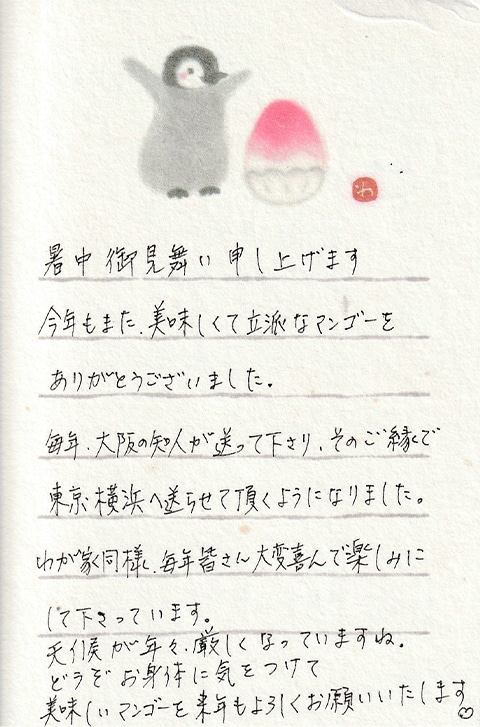 わ
暑中御見舞い申し上げます
今年もまた、美味しくて立派なマンゴーを
ありがとうございました。
毎年、大阪の知人が送って下さり、そのご縁で
東京、横浜へ送らせて頂くようになりました。
わが家同様、毎年皆さん大変喜んで楽しみに
して下さっています。
天候が年々、厳しくなっていますね。
どうぞお身体に気をつけて
美味しいマンゴーを来年もよろしくお願いいたします♡